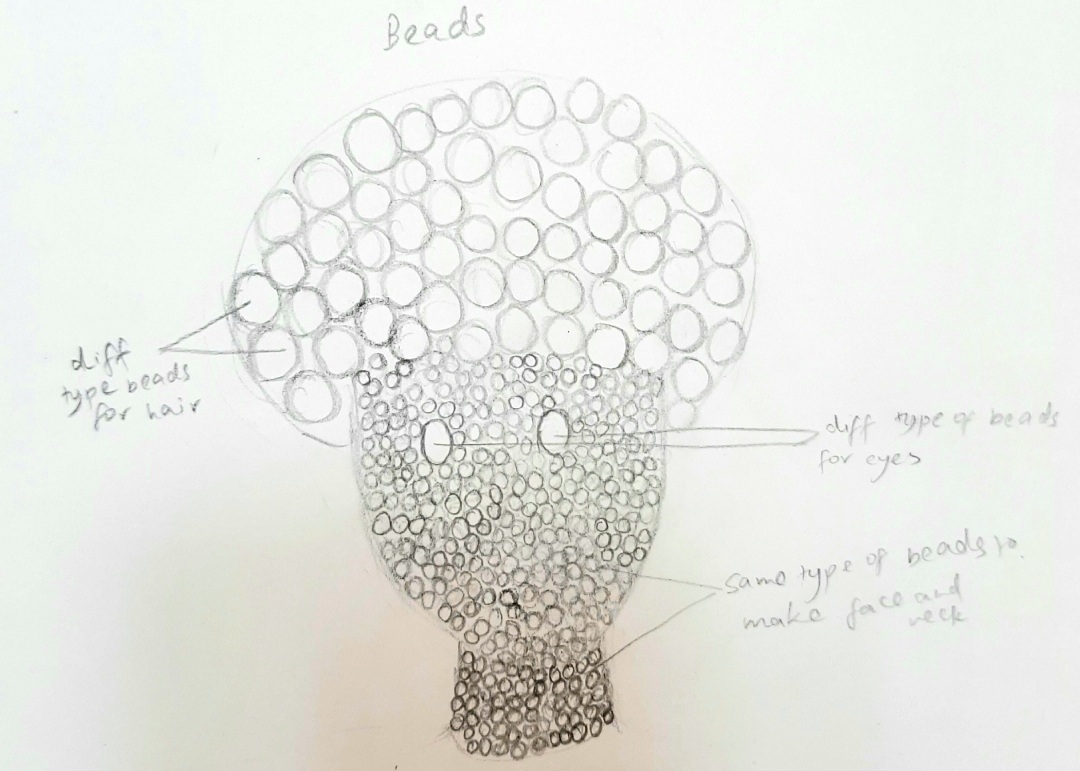 Beads
diff
type beads
for hair
diff type of beads
for eyes
same type of beads to
make face and
neck